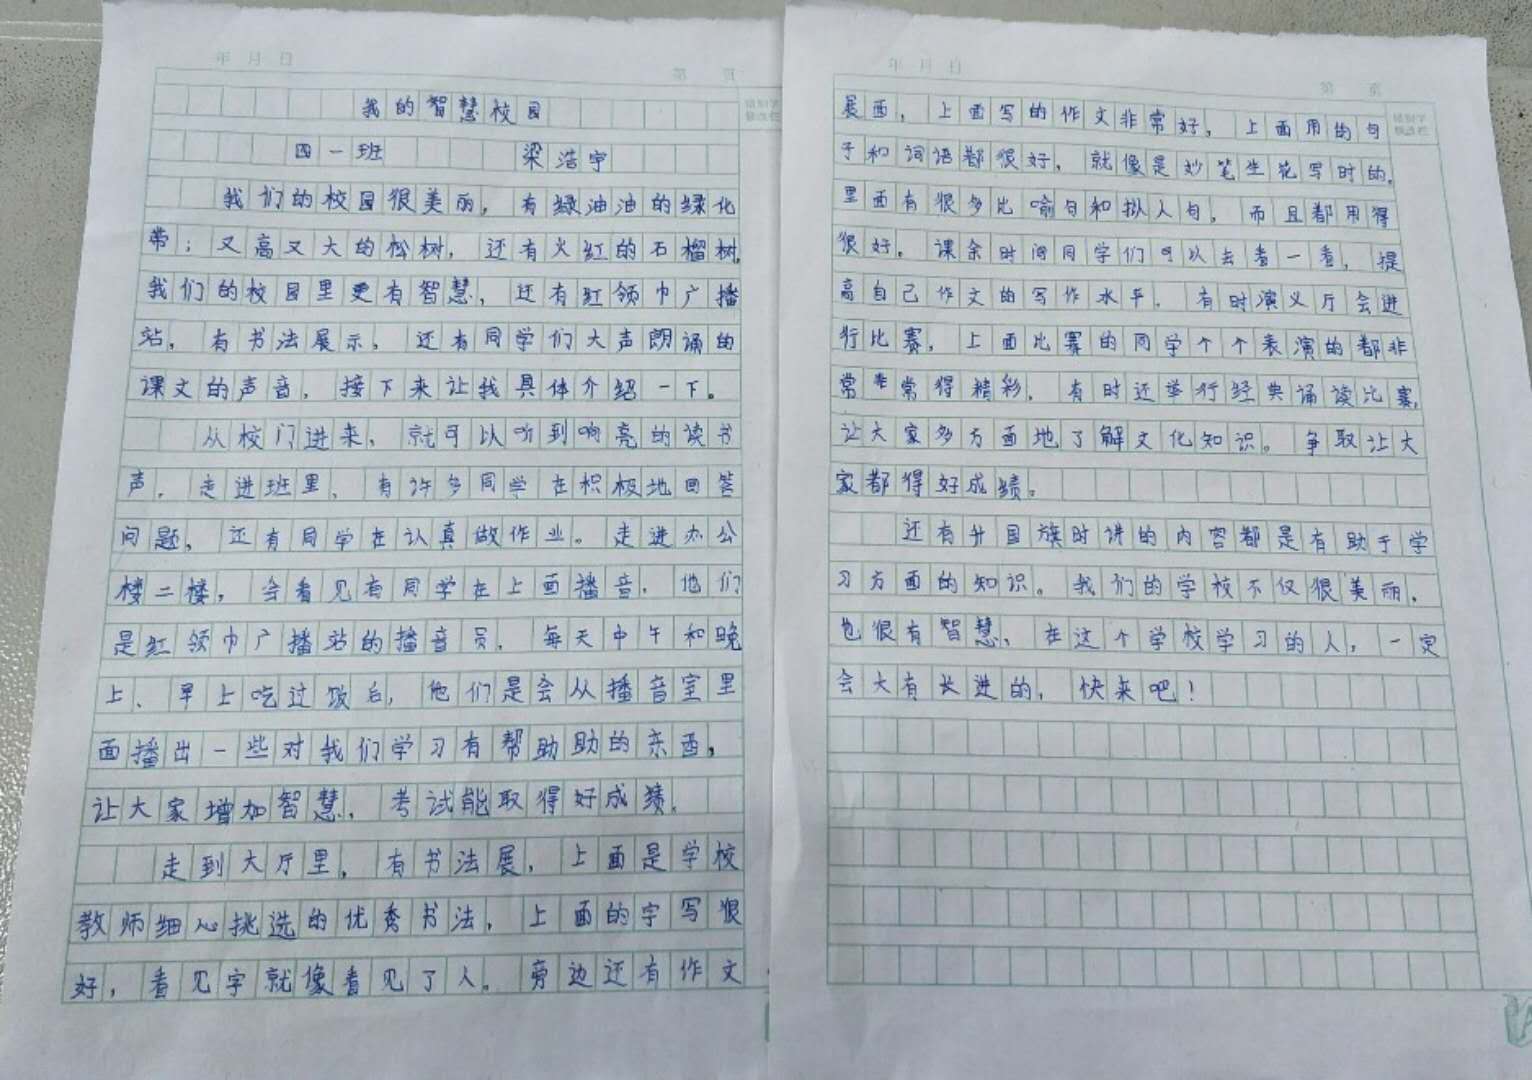 年 月 日
第 页
我的智慧校园
四一班 梁浩宇
我们的校园很美丽，有绿油油的绿化
带；又高又大的松树，还有火红的石榴树。
我们的校园里更有智慧，还有红领巾广播
站，有书法展示，还有同学们大声朗诵的
课文的声音，接下来让我具体介绍一下。
从校门进来，就可以听到响亮的读书
声，走进班里，有许多同学在积极地回答
问题，还有同学在认真做作业。走进办公
楼二楼，会看见有同学在上面播音，他们
是红领巾广播站的播音员，每天中午和晚
上、早上吃过饭后，他们是会从播音室里
面播出一些对我们学习有帮助助的东西，
让大家增加智慧，考试能取得好成绩。
走到大厅里，有书法展，上面是学校
教师细心挑选的优秀书法，上面的字写很
好，看见字就像看见了人。旁边还有作文
年 月 日
第 页
展面，上面写的作文非常好，上面用的句
子和词语都很好，就像是妙笔生花写时的。
里面有很多比喻句和拟人句，而且都用得
很好。课余时间同学们可以去看一看，提
高自己作文的写作水平，有时演义厅会进
行比赛，上面比赛的同学个个表演的都非
常非常得精彩，有时还举行经典诵读比赛，
让大家多方面地了解文化知识。争取让大
家都得好成绩。
还有升国旗时讲的内容都是有助于学
习方面的知识。我们的学校不仅很美丽，
也很有智慧、在这个学校学习的人，一定
会大有长进的，快来吧！